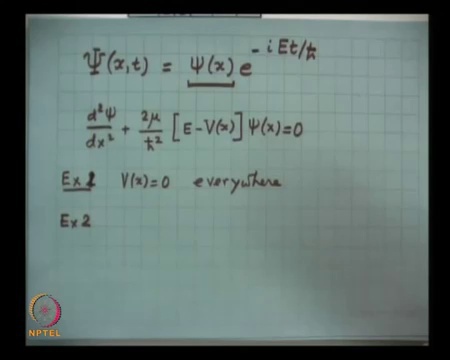 Ψ(x,t) = ψ(x) e^{-iEt/ħ}
d²ψ/dx² + 2μ/ħ² [E-V(x)] ψ(x)=0
Ex 1 V(x)=0 everywhere
Ex 2
NPTEL